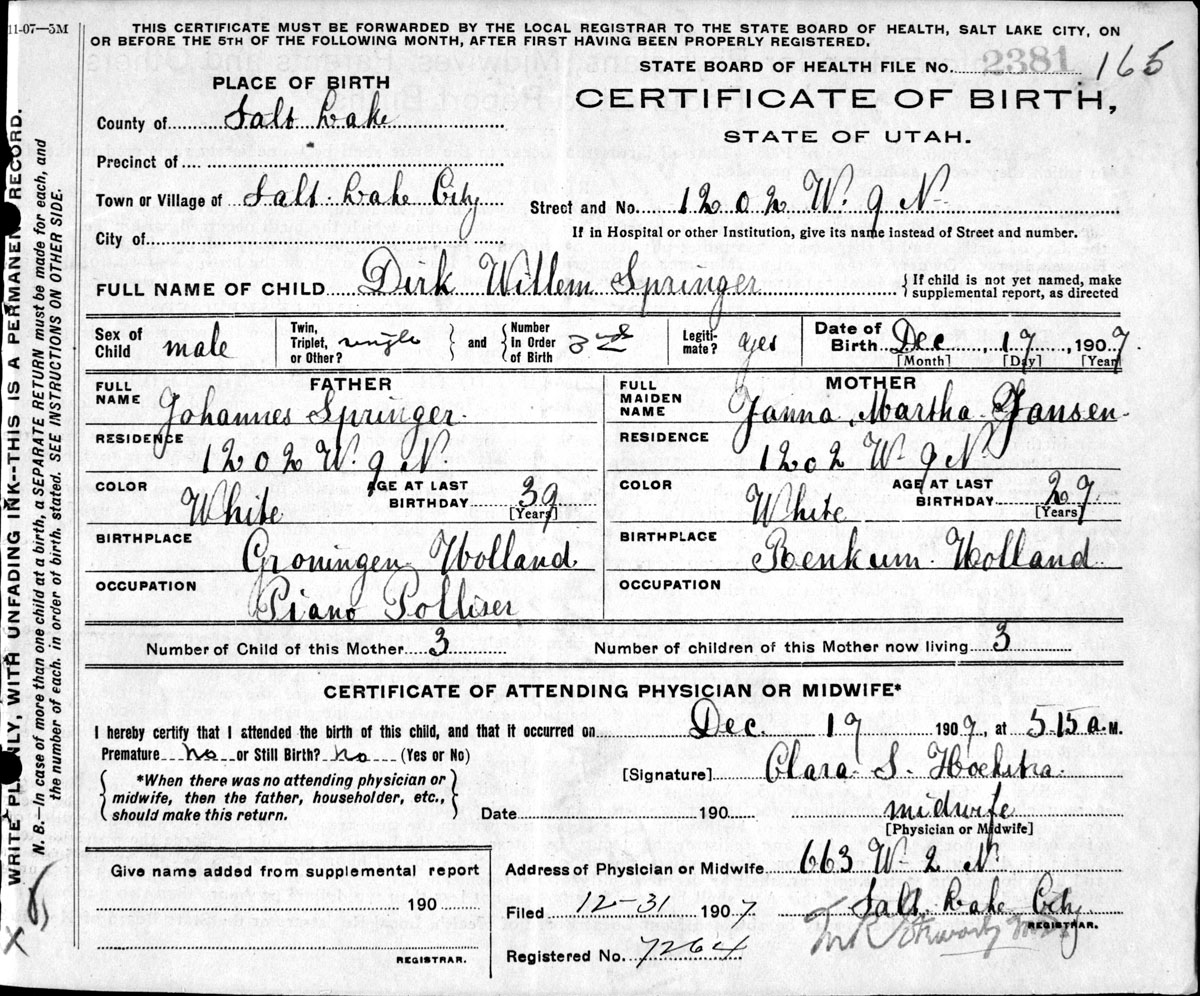 11-07—5M
THIS CERTIFICATE MUST BE FORWARDED BY THE LOCAL REGISTRAR TO THE STATE BOARD OF HEALTH, SALT LAKE CITY, ON
OR BEFORE THE 5TH OF THE FOLLOWING MONTH, AFTER FIRST HAVING BEEN PROPERLY REGISTERED.
STATE BOARD OF HEALTH FILE No. 2381 165
PLACE OF BIRTH
CERTIFICATE OF BIRTH,
STATE OF UTAH.
County of Salt Lake
Precinct of
Town or Village of Salt Lake City
Street and No. 1202 W. 9 N.
City of
If in Hospital or other Institution, give its name instead of Street and number.
FULL NAME OF CHILD Dirk Willem Springer
{If child is not yet named, make
supplemental report, as directed
Sex of Child male
Twin, Triplet, or Other? single } and { Number In Order of Birth 3rd
Legiti-mate? yes
Date of Birth Dec 17, 1907
[Month] [Day] [Year]
FATHER
FULL NAME Johannes Springer
RESIDENCE 1202 W. 9 N.
COLOR White
AGE AT LAST BIRTHDAY 39
[Years]
BIRTHPLACE Groningen Holland
OCCUPATION Piano Polliser
MOTHER
FULL MAIDEN NAME Janna Martha Jansen
RESIDENCE 1202 W 9 N
COLOR White
AGE AT LAST BIRTHDAY 27
[Years]
BIRTHPLACE Renkum Holland
OCCUPATION
Number of Child of this Mother 3
Number of children of this Mother now living 3
CERTIFICATE OF ATTENDING PHYSICIAN OR MIDWIFE*
I hereby certify that I attended the birth of this child, and that it occurred on Dec. 17 1907, at 5.15 a.M.
Premature no or Still Birth? no (Yes or No)
{*When there was no attending physician or
midwife, then the father, householder, etc.,
should make this return.}
[Signature] Clara S. Hoekstra
Date 190 midwife
[Physician or Midwife]
Give name added from supplemental report
190
REGISTRAR.
Address of Physician or Midwife 663 W- 2 N.
Salt Lake City
Filed 12-31 1907
REGISTRAR.
Registered No. 7264
WRITE PLAINLY, WITH UNFADING INK—THIS IS A PERMANENT RECORD.
N. B.—In case of more than one child at a birth, a SEPARATE RETURN must be made for each, and
the number of each, in order of birth, stated. SEE INSTRUCTIONS ON OTHER SIDE.